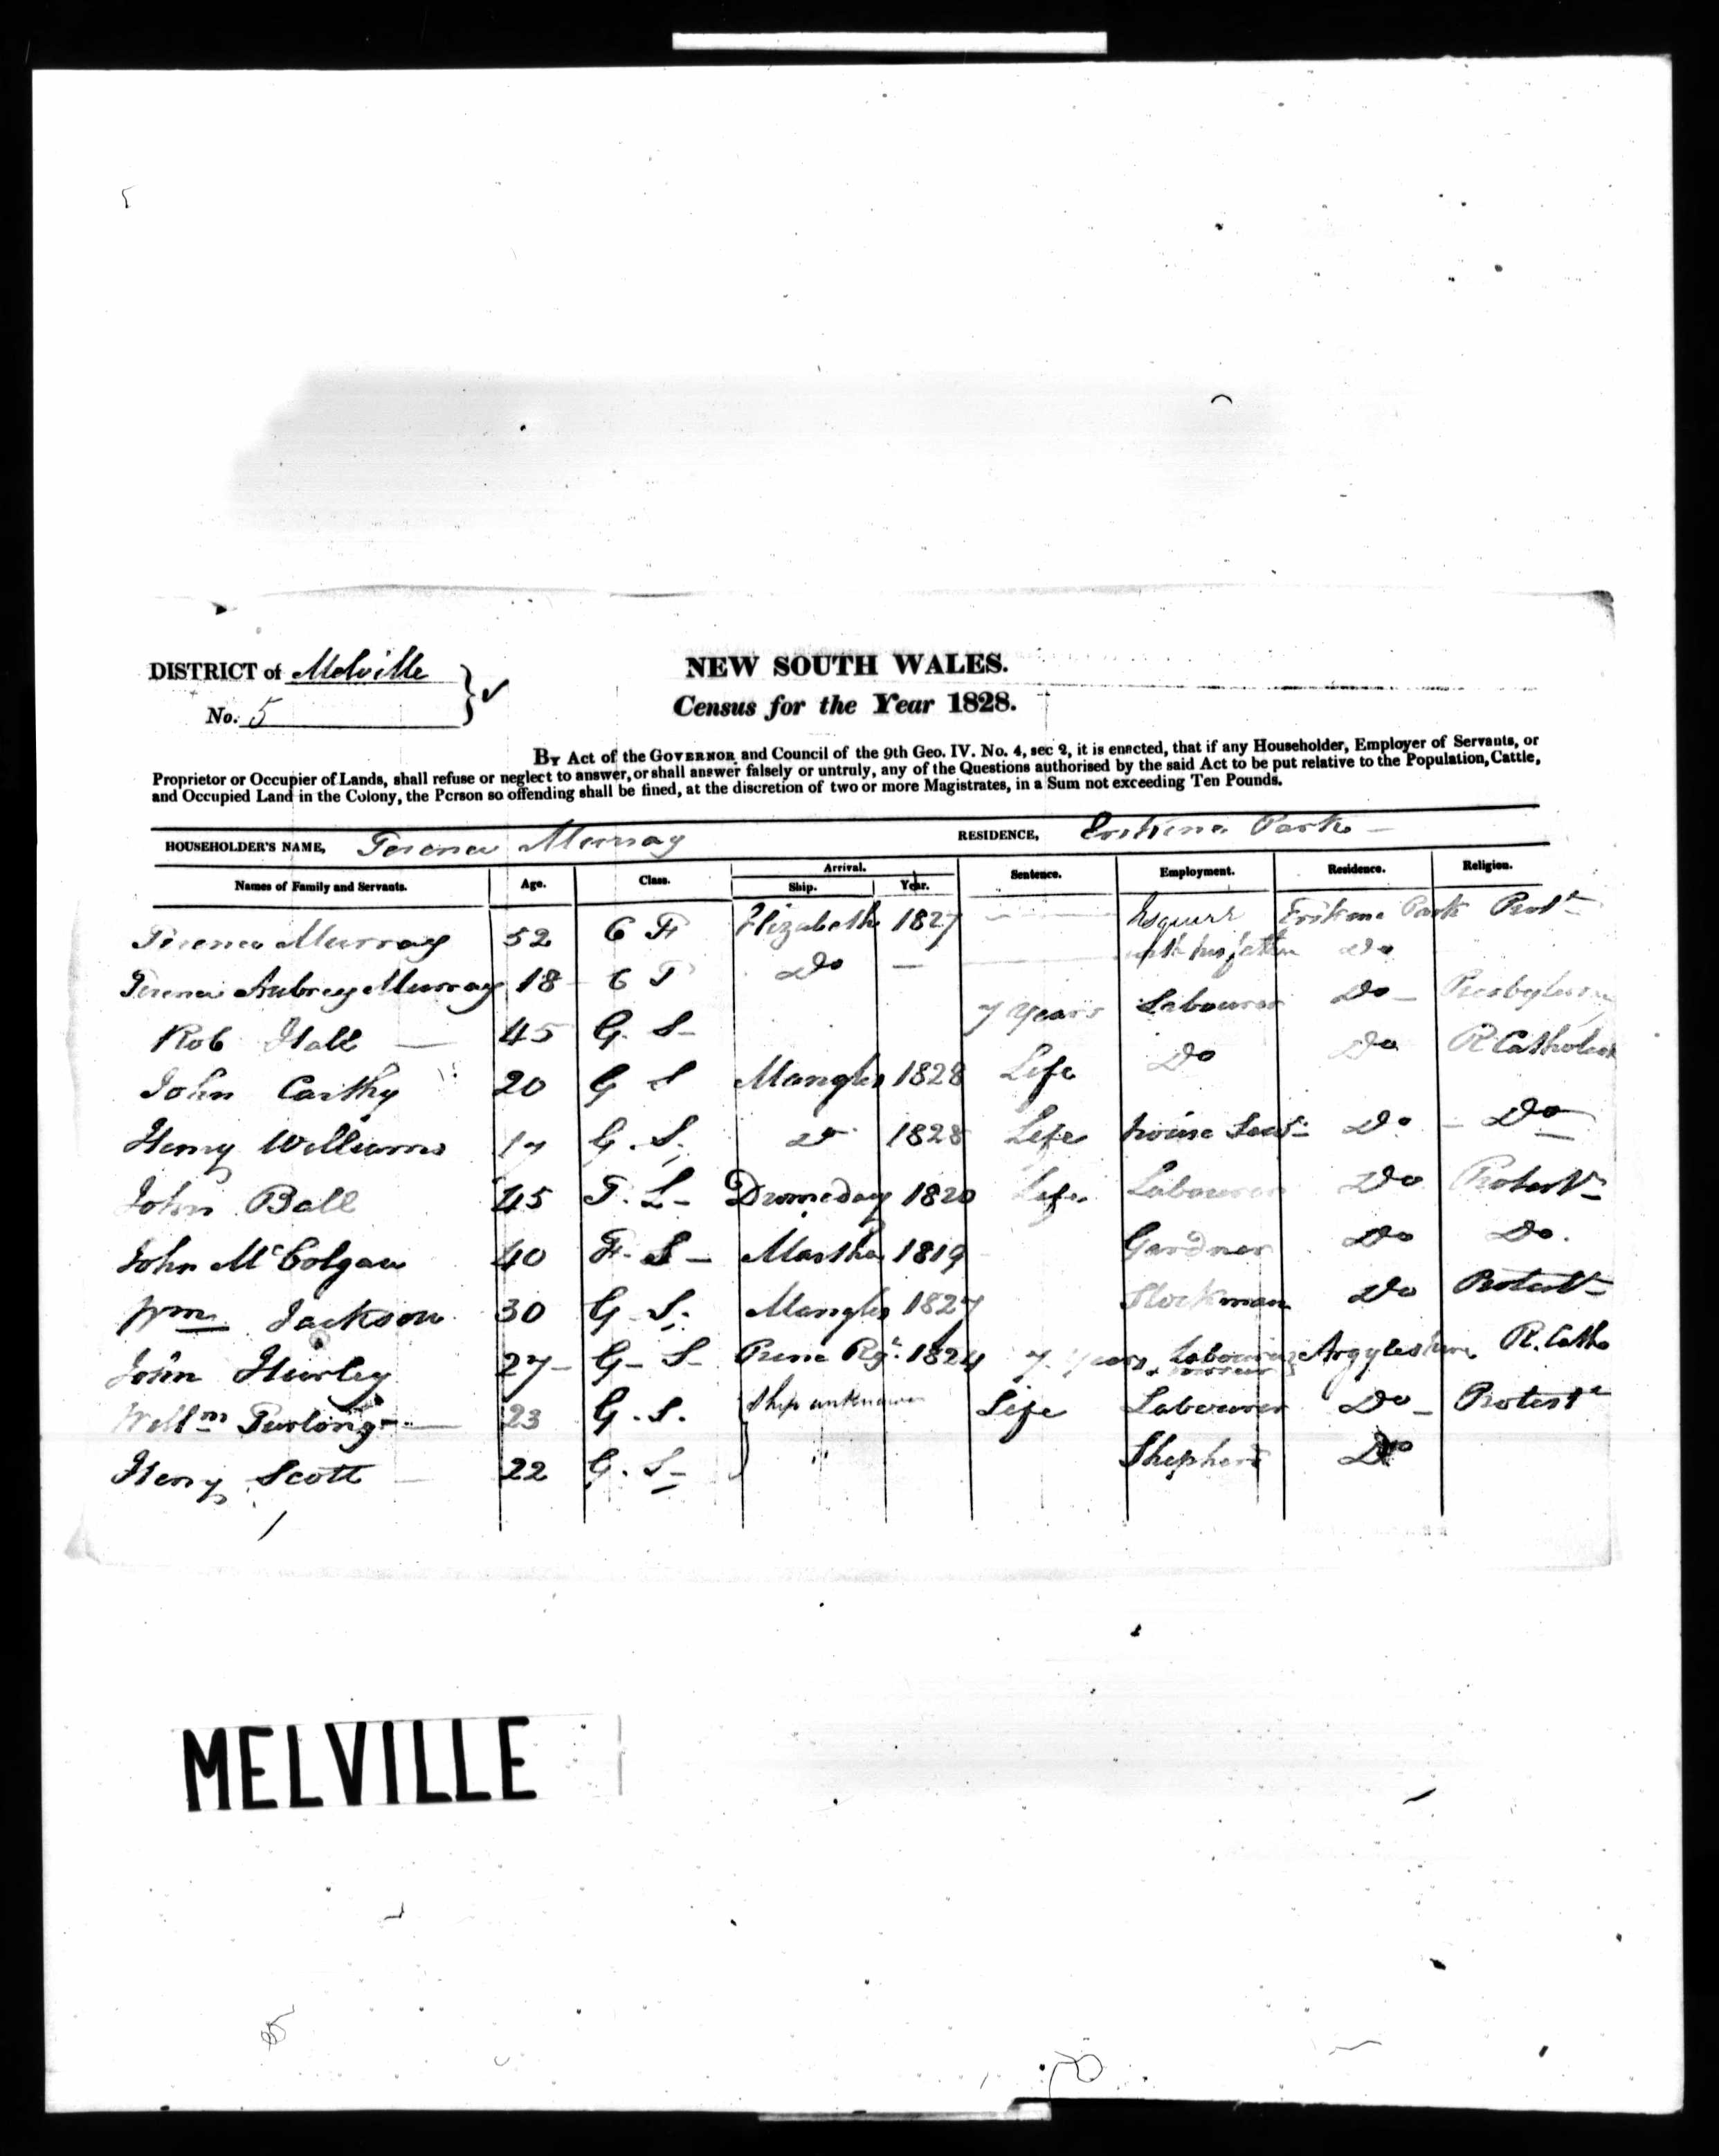 DISTRICT of Melville
No. 5
NEW SOUTH WALES.
Census for the Year 1828.
BY Act of the GOVERNOR and Council of the 9th Geo. IV. No. 4, sec 2, it is enacted, that if any Householder, Employer of Servants, or
Proprietor or Occupier of Lands, shall refuse or neglect to answer, or shall answer falsely or untruly, any of the Questions authorised by the said Act to be put relative to the Population, Cattle,
and Occupied Land in the Colony, the Person so offending shall be fined, at the discretion of two or more Magistrates, in a Sum not exceeding Ten Pounds.
HOUSEHOLDER'S NAME, Terence Murray RESIDENCE, Erskine Park
Names of Family and Servants. Age. Class. Arrival. Ship. Year. Sentence. Employment. Residence. Religion.
Terence Murray 52 C F Elizabeth 1827 Esquire Erskine Park Prot
Terence Aubrey Murray 18 C F Do with his father Do
Rob Hall 45 G. S 7 years Labourer Do Presbyterian
John Carthy 20 G S Mangles 1828 Life Do Do R Catholic
Henry Williams 17 G. S. Do 1828 Life house Servt Do Do
John Ball 45 T. L Dromeday 1820 Life Labourer Do Protestt
John McColgan 40 F. S Martha 1819 Gardner Do Do.
Wm Jackson 30 G. S. Mangles 1827 Stockman Do Protestt
John Hurley 27 G. S Prine Rgt. 1824 7 years Labourer Argyleshire R. Catho
Willm Purlong 23 G. S. Ship unknown Life Labourer Do Protestt
Henry Scott 22 G. S " Shepherd Do
MELVILLE